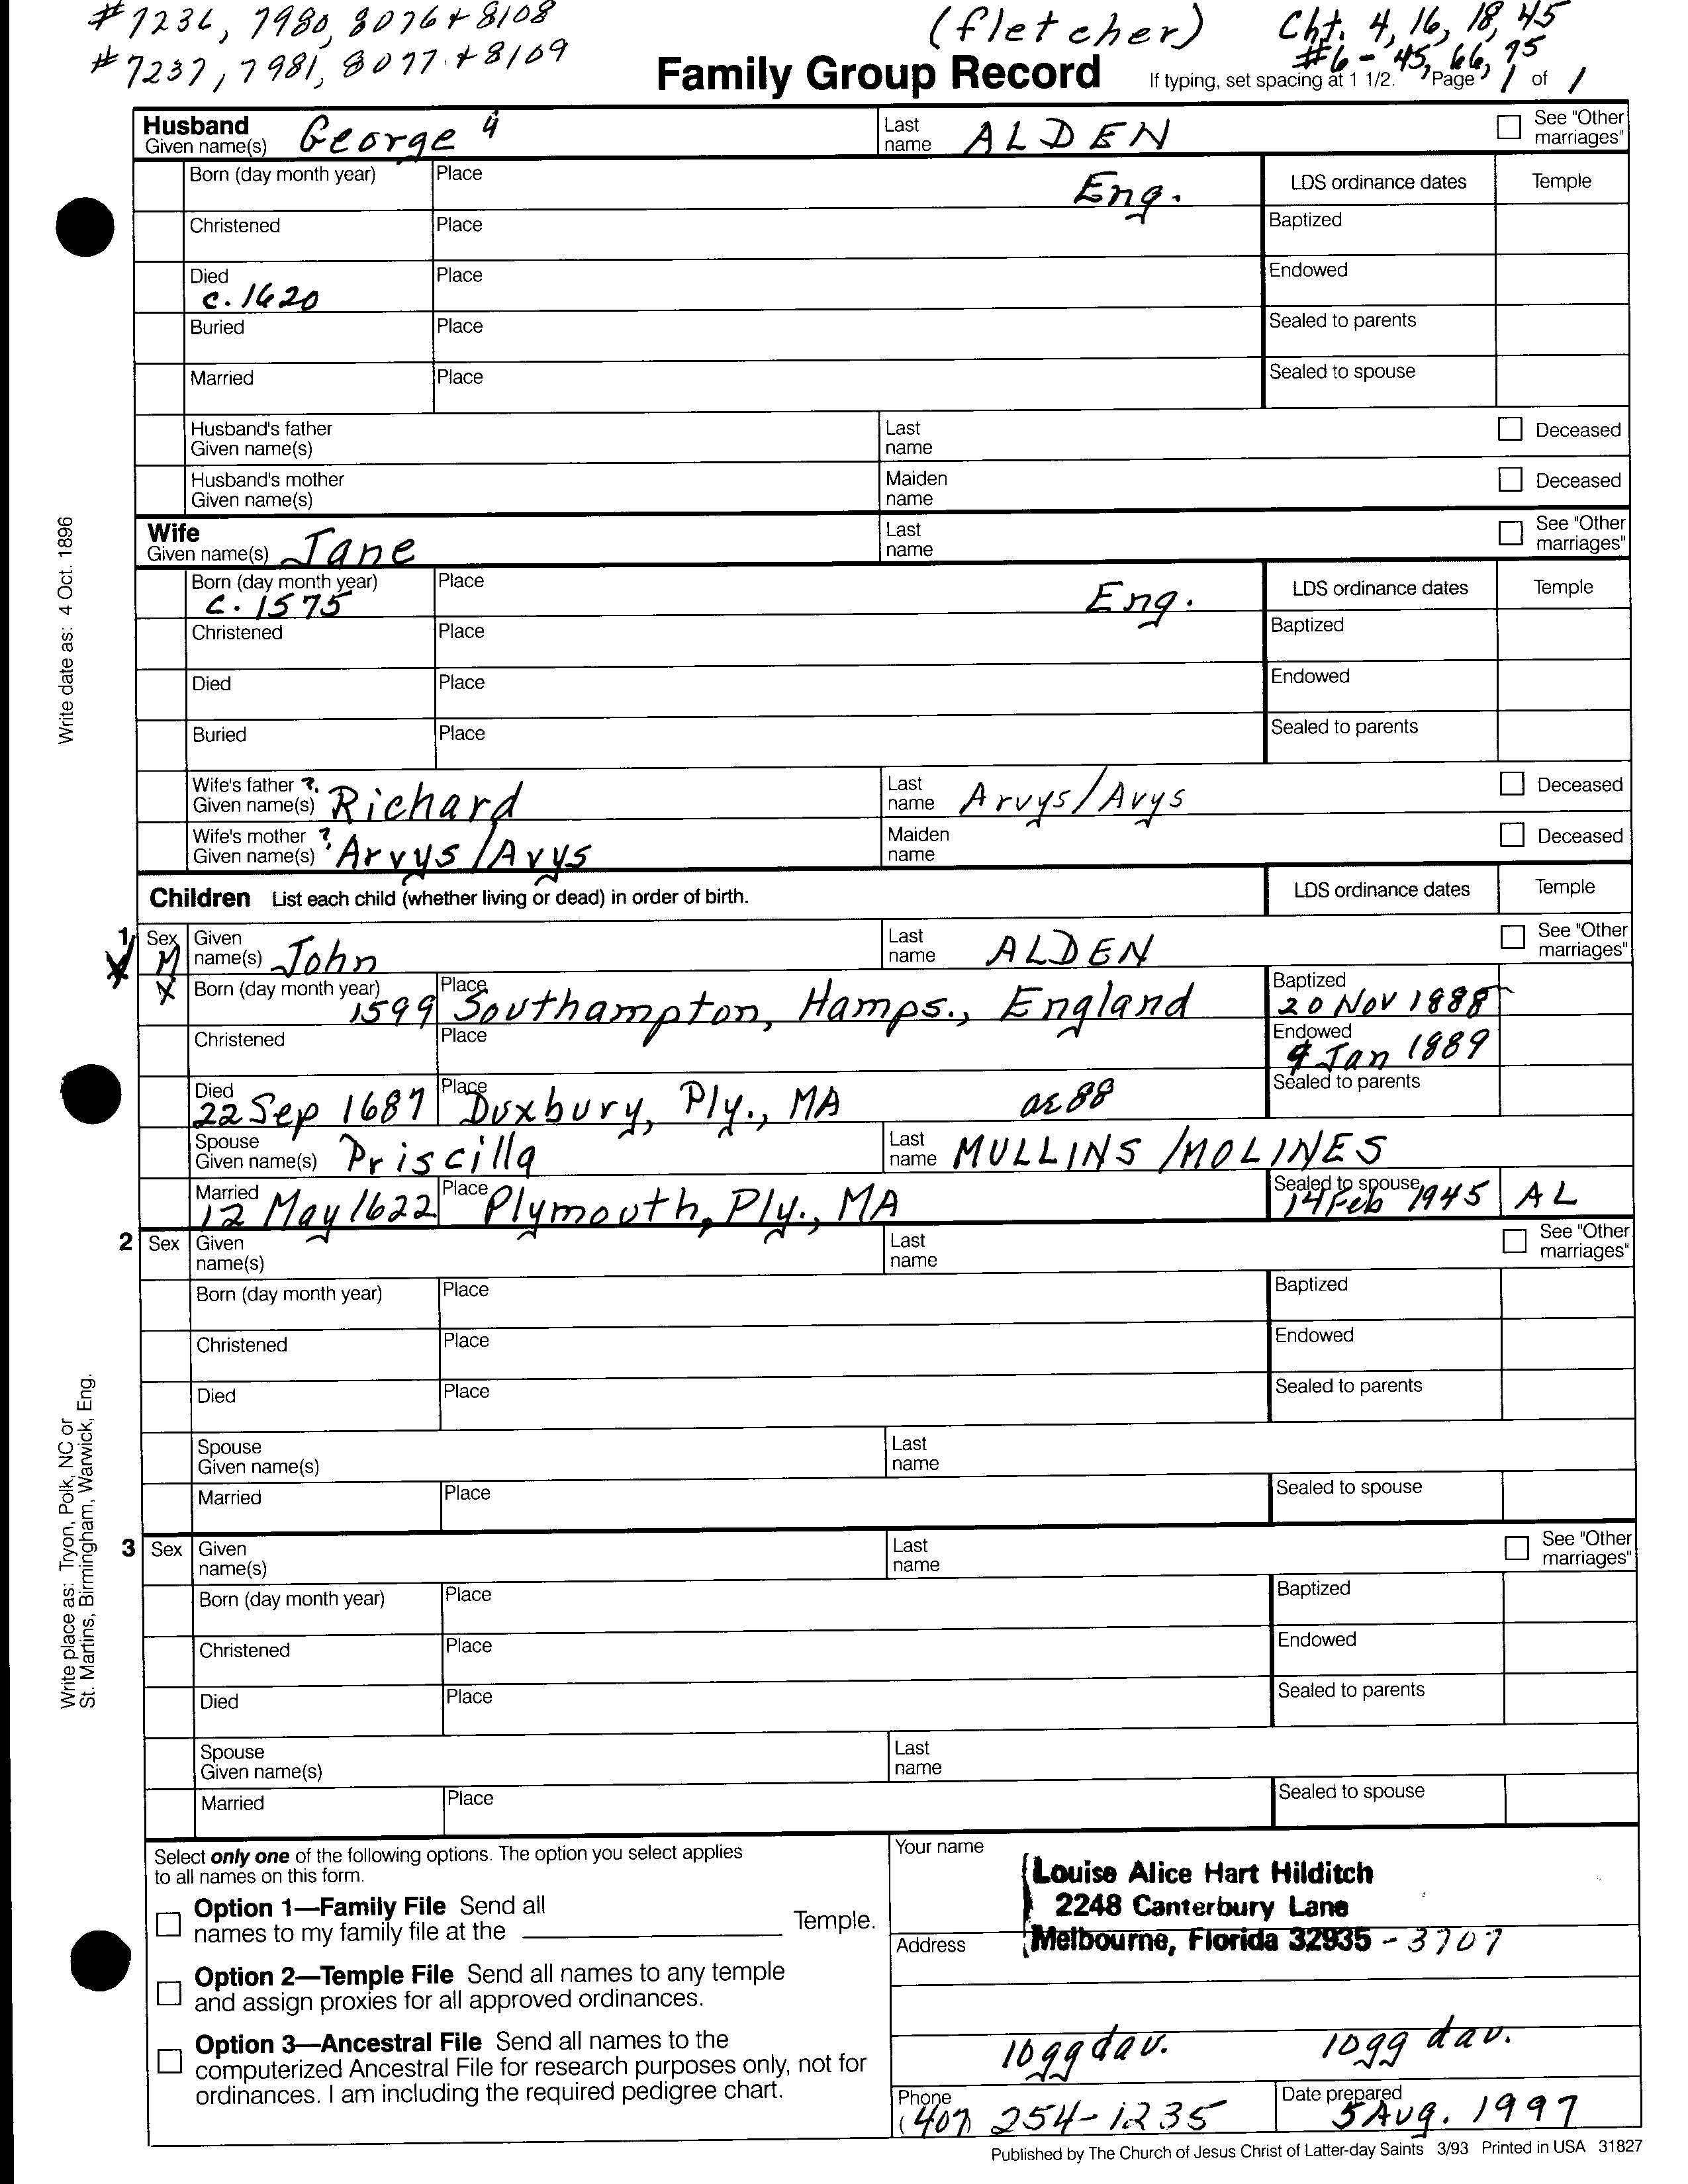 #7236, 7980, 8076 + 8108
(fletcher)
Cht. 4, 16, 18, 45
#7237, 7981, 8077 + 8109
#6 - 45, 66, 75
Family Group Record
If typing, set spacing at 1 1/2.
Page 1 of 1
Husband
Given name(s) George
Last name ALDEN
See "Other marriages"
Born (day month year)
Place Eng.
LDS ordinance dates
Temple
Christened
Place
Baptized
Died c. 1620
Place
Endowed
Buried
Place
Sealed to parents
Married
Place
Sealed to spouse
Husband's father
Given name(s)
Last name
Deceased
Husband's mother
Given name(s)
Maiden name
Deceased
Wife
Given name(s) Jane
Last name
See "Other marriages"
Born (day month year) c. 1575
Place Eng.
LDS ordinance dates
Temple
Christened
Place
Baptized
Died
Place
Endowed
Buried
Place
Sealed to parents
Wife's father ?
Given name(s) Richard
Last name Arvys/Avys
Deceased
Wife's mother ?
Given name(s) Arvys/Avys
Maiden name
Deceased
Children List each child (whether living or dead) in order of birth.
LDS ordinance dates
Temple
1 Sex M
X
Given name(s) John
Last name ALDEN
See "Other marriages"
Born (day month year) 1599
Place Southampton, Hamps., England
Baptized 20 Nov 1888
Christened
Place
Endowed 9 Jan 1889
Died 22 Sep 1687
Place Duxbury, Ply., MA ae 88
Sealed to parents
Spouse
Given name(s) Priscilla
Last name MULLINS /MOLINES
Married 12 May 1622
Place Plymouth, Ply., MA
Sealed to spouse 14 Feb 1945 AL
2 Sex
Given name(s)
Last name
See "Other marriages"
Born (day month year)
Place
Baptized
Christened
Place
Endowed
Died
Place
Sealed to parents
Spouse
Given name(s)
Last name
Married
Place
Sealed to spouse
3 Sex
Given name(s)
Last name
See "Other marriages"
Born (day month year)
Place
Baptized
Christened
Place
Endowed
Died
Place
Sealed to parents
Spouse
Given name(s)
Last name
Married
Place
Sealed to spouse
Write date as: 4 Oct. 1896
Write place as: Tryon, Polk, NC or
St. Martins, Birmingham, Warwick, Eng.
Select only one of the following options. The option you select applies
to all names on this form.
Option 1—Family File Send all
names to my family file at the Temple.
Option 2—Temple File Send all names to any temple
and assign proxies for all approved ordinances.
Option 3—Ancestral File Send all names to the
computerized Ancestral File for research purposes only, not for
ordinances. I am including the required pedigree chart.
Your name
Louise Alice Hart Hilditch
2248 Canterbury Lane
Address
Melbourne, Florida 32935 - 3707
10gg dau. 10gg dau.
Phone
(407) 254-1235
Date prepared
5 Aug. 1997
Published by The Church of Jesus Christ of Latter-day Saints 3/93 Printed in USA 31827